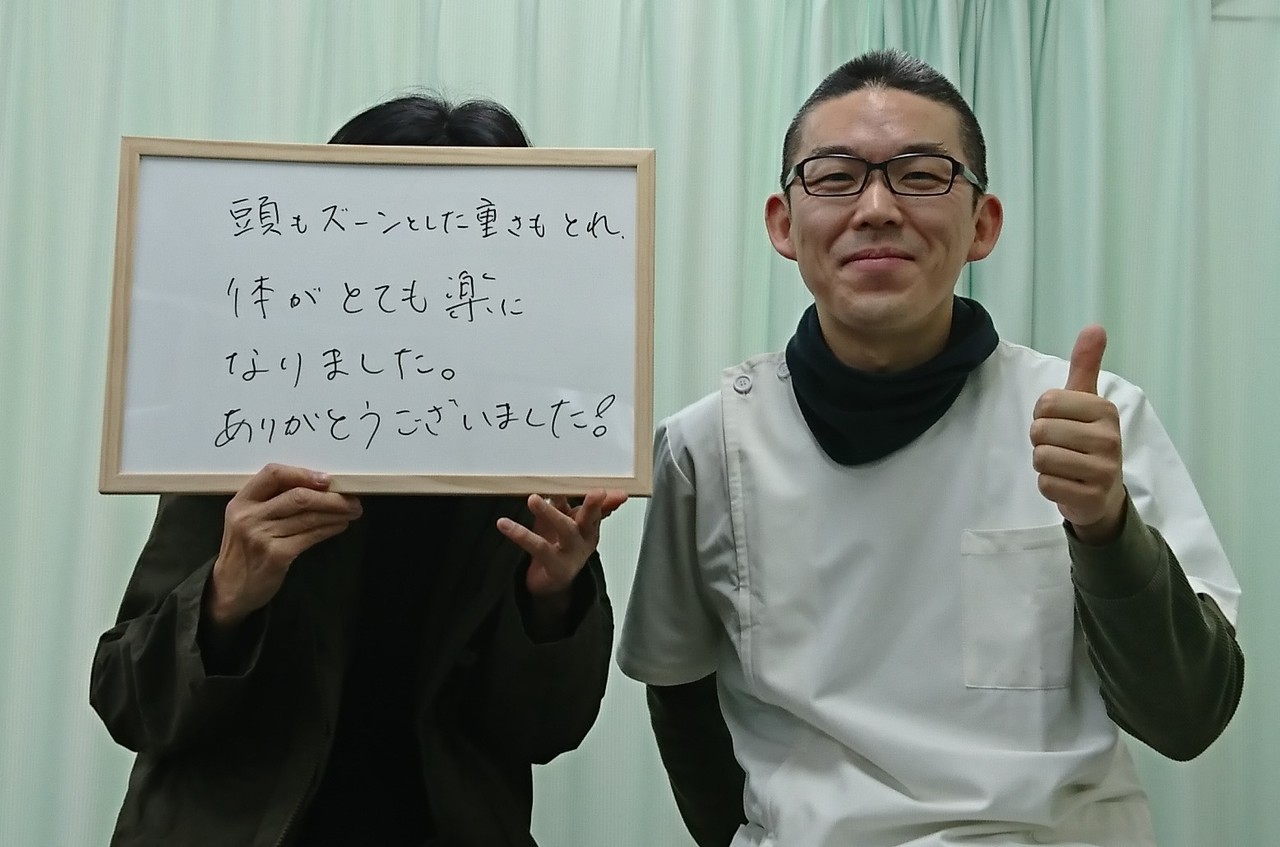 頭もズーンとした重さもとれ、
体がとても楽に
なりました。
ありがとうございました!